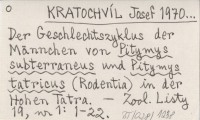 O KRATOCHVÍL Josef 1970...
Der Geschlechtszyklus der
Männchen von Pitymys
subterraneus und Pitymys
tatricus (Rodentia) in der
Hohen Tatra. — Zool. Listy
19, nr 1: 1-22.